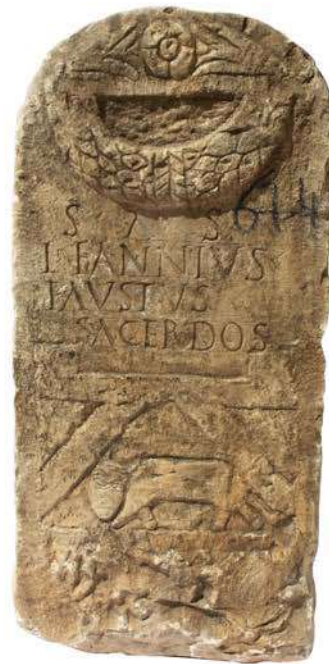 S A S 614
L FANNIVS
FAVSTVS
SACERDOS